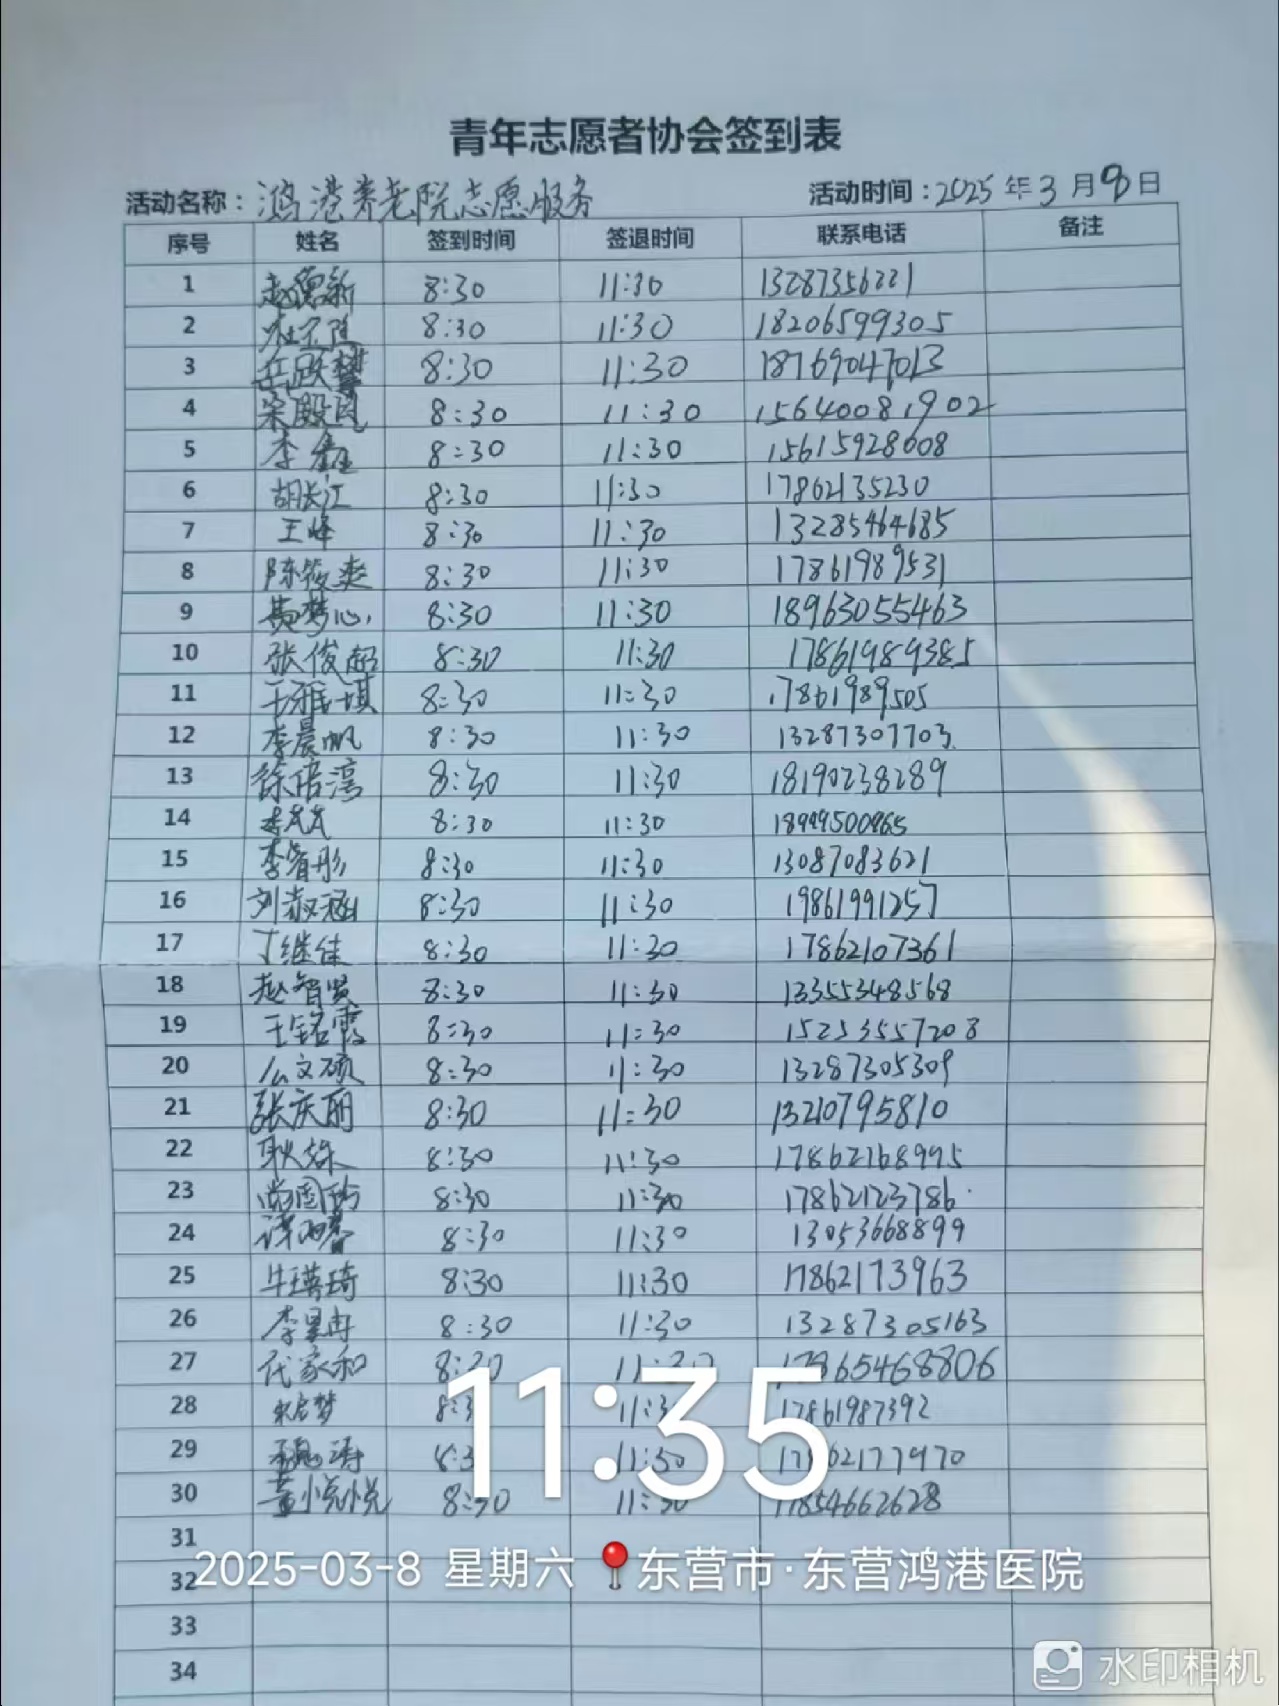 青年志愿者协会签到表
活动名称：鸿港养老院志愿服务 活动时间：2025年3月8日
序号 姓名 签到时间 签退时间 联系电话 备注
1 赵德新 8:30 11:30 13287356221
2 8:30 11:30 18206599305
3 8:30 11:30 18769047013
4 宋殿凤 8:30 11:30 15640081902
5 李鑫 8:30 11:30 15615928608
6 胡长江 8:30 11:30 17862135230
7 王峰 8:30 11:30 13285464685
8 陈筱爽 8:30 11:30 17861989531
9 8:30 11:30 18963055463
10 张俊超 8:30 11:30 17861989385
11 于雅琪 8:30 11:30 17861989505
12 李晨帆 8:30 11:30 13287307703
13 徐培湾 8:30 11:30 18190238289
14 8:30 11:30
15 8:30 11:30 13087083621
16 刘淑涵 8:30 11:30 19861991257
17 丁继佳 8:30 11:30 17862107361
18 赵智贤 8:30 11:30 13355348568
19 王铭霞 8:30 11:30 15253557208
20 公文硕 8:30 11:30 13287305309
21 张庆丽 8:30 11:30 13210795810
22 耿姝 8:30 11:30 17862168995
23 8:30 11:30 17862123786
24 8:30 11:30 13053668899
25 牛瑛琦 8:30 11:30 17862173963
26 李昱冉 8:30 11:30 13287305163
27 代家和 8:30 11:30 17865468806
28 11:3 17861987392
29 11:30
30 董悦悦 8:30 11:30 17854662628
31
32
33
34
11:35
2025-03-8 星期六 东营市·东营鸿港医院
水印相机